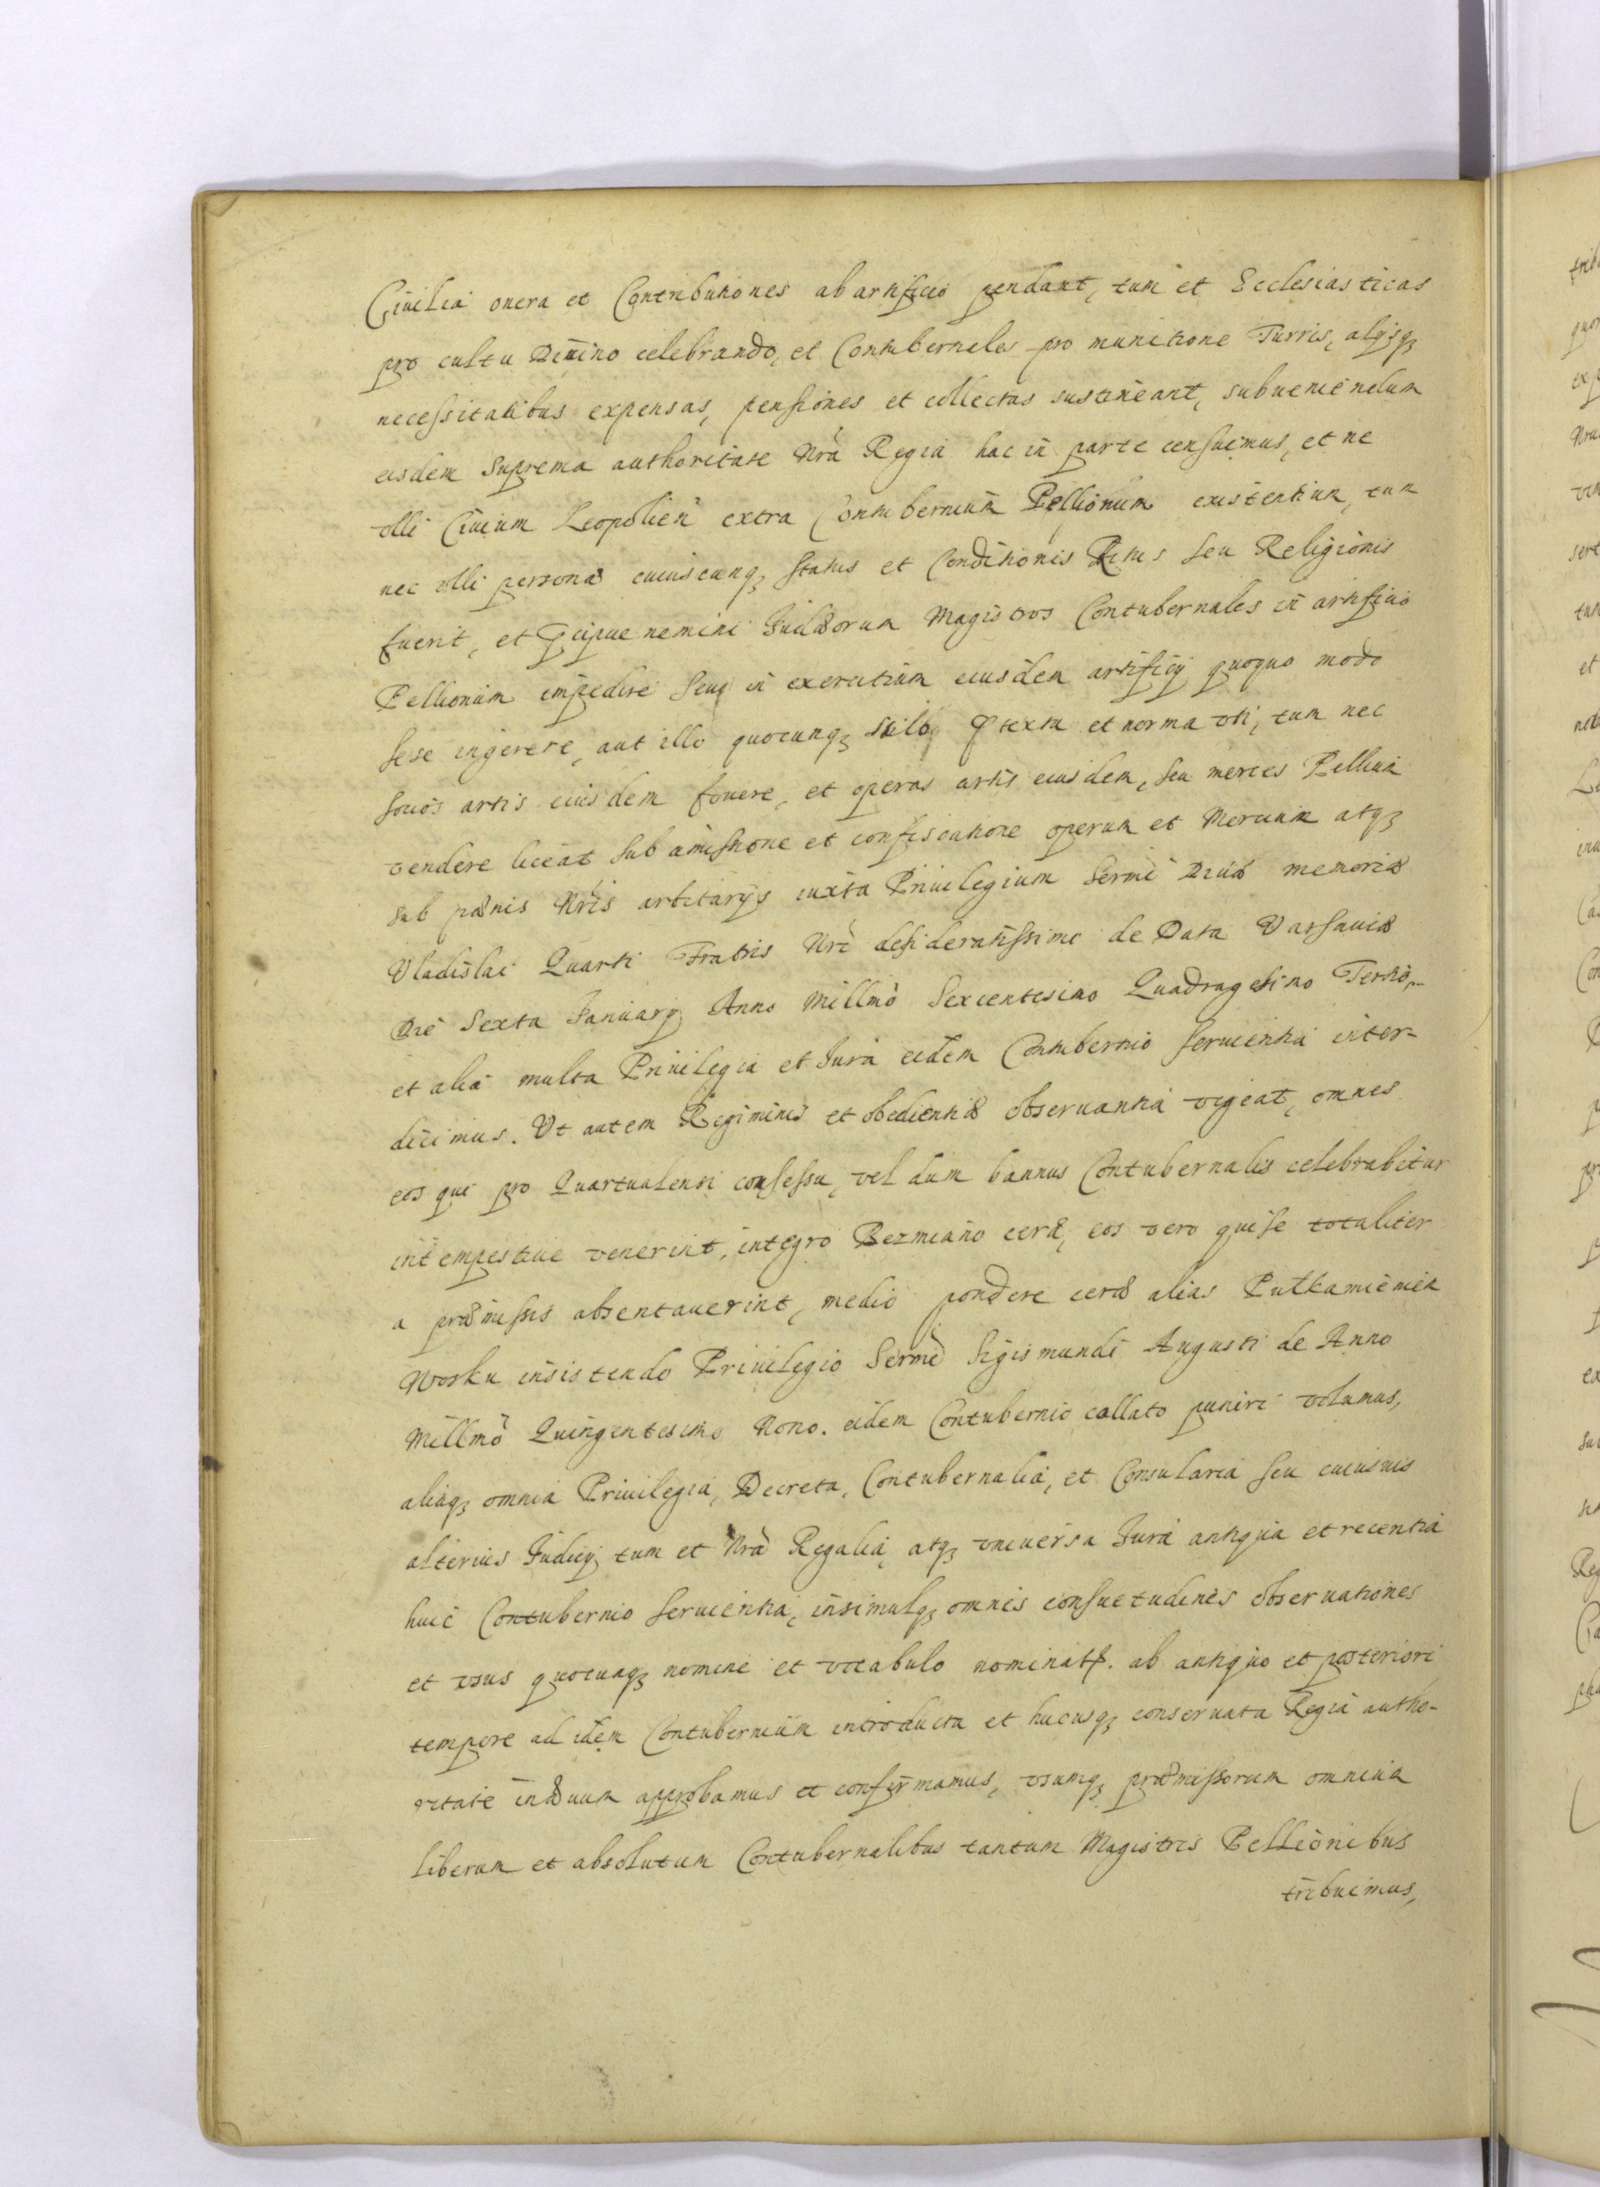 Civilia onera et Contributiones ab artificio pendant, tum et Ecclesiasticas
pro cultu Divino celebrando, et Contubernales pro munitione Turris, alijsq3
necessitatibus expensas, pensiones et collectas sustineant, subveniendum
eisdem Suprema authoritate Nrã Regia hac in parte censuimus, et ne
ulli Civium Leopolien extra Contubernium Pellionum existentium, tum
nec ulli personæ cuiuscunq3 Status et Conditionis Ritus seu Religionis
fuerit, et p̃cipue nemini Judæorum Magistros Contubernales in artificio
Pellionum impedire seuq in exercitium eiusdem artificij quoquo modo
sese ingerere, aut illo quocunq3 stilo p̃textu et norma uti, tum nec
socios artis eiusdem fovere, et operas artis eiusdem, seu merces Pellium
vendere liceat sub amissione et confiscatione operum et Mercium atq3
sub pænis Nr̃is arbitrarijs iuxta Privilegium Serm̃i Divæ memoriæ
Vladislai Quarti Fratris Nr̃i desideratissimi de Data Varsaviæ
Die Sexta Januarij Anno Millm̃o Sexcentesimo Quadragesimo Tertio,
et alia multa Privilegia et Jura eidem Contubernio servientia inter-
dicimus. Ut autem Regiminis et obedientiæ observantia vigeat, omnes
eos qui pro Quartualensi consessu, vel dum bannus Contubernalis celebrabitur
intempestive venerint, integro Bezmiano ceræ, eos vero qui se totaliter
a præmissis absentaverint, medio pondere ceræ alias Pulkamienien
Wosku insistendo Privilegio Serm̃i Sigismundi Augusti de Anno
Millm̃o Quingentesimo Nono. eidem Contubernio collato puniri volumus,
aliaq3 omnia Privilegia, Decreta, Contubernalia, et Consularia seu cuiusvis
alterius Judicij tum et Nrã Regalia, atq3 universa Jura antiqua et recentia
huic Contubernio servientia, insimulq3 omnes consuetudines observationes
et usus quocunq3 nomine et vocabulo nominat. ab antiquo et posteriori
tempore ad idem Contubernium introducta et hucusq3 conservata Regia autho-
ritate in ævum approbamus et confirmamus, usumq3 præmissorum omnium
liberum et absolutum Contubernalibus tantum Magistris Pellionibus
tribuimus,